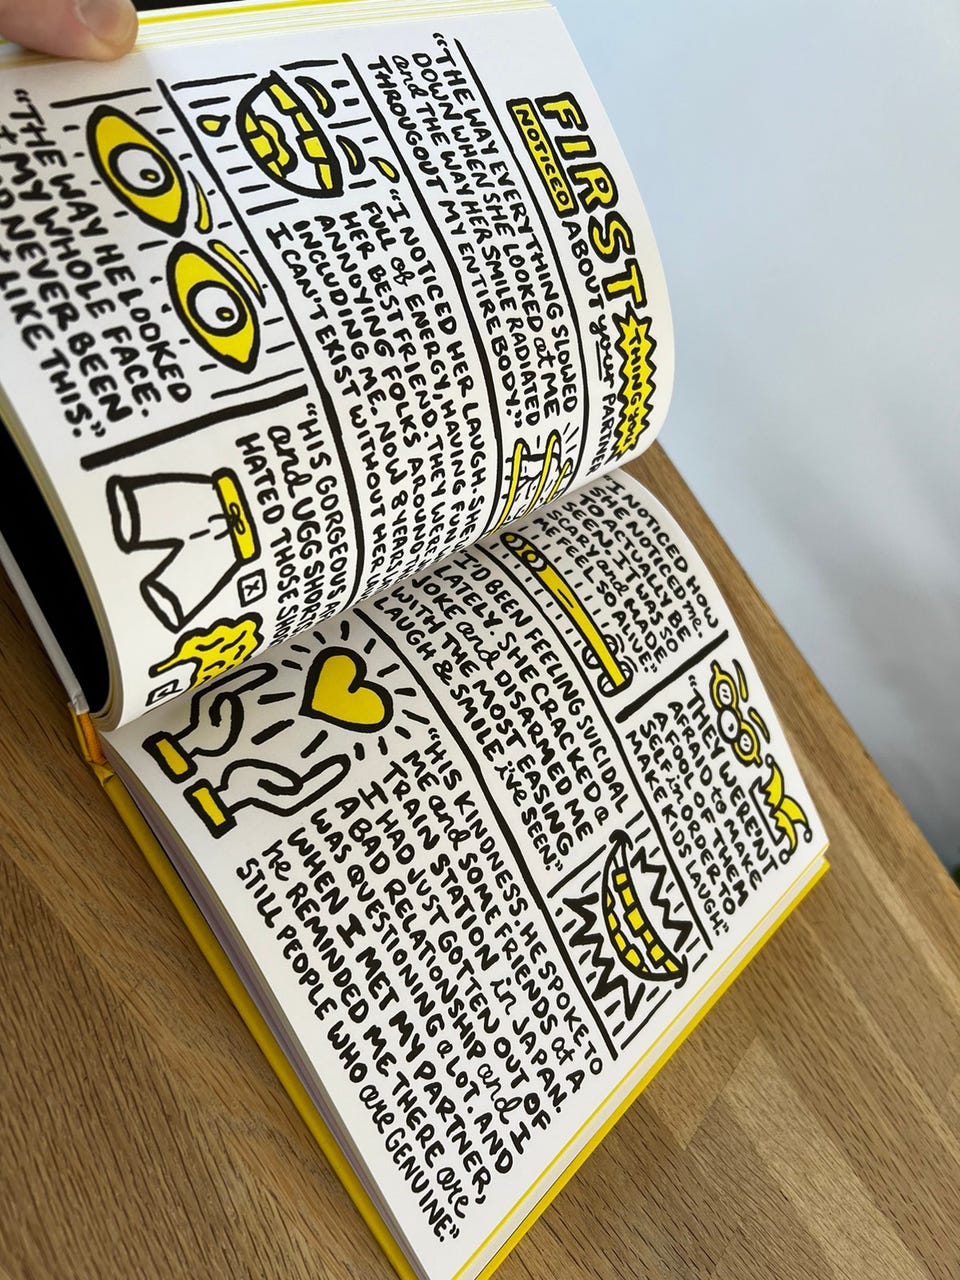 FIRST THING YOU
NOTICED ABOUT your PARTNER
"THE WAY EVERYTHING SLOWED
DOWN WHEN SHE LOOKED at ME
and THE WAY HER SMILE RADIATED
THROUGOUT MY ENTIRE BODY."
"I NOTICED HER LAUGH. SHE
FULL of ENERGY, HAVING FUN
HER BEST FRIEND. THEY WERE
ANNOYING FOLKS AROUND
INCLUDING ME. NOW 8 YEARS
I CAN'T EXIST WITHOUT HER
"THE WAY HE LOOKED
MY WHOLE FACE.
NEVER BEEN
LIKE THIS."
"HIS GORGEOUS
and UGG SHORTS
HATED THOSE
"I NOTICED HOW
SHE NOTICED me.
TO ACTUALLY BE
SEEN. IT WAS SO
SCARY and MADE
ME FEEL SO ALIVE."
"THEY WEREN'T
AFRAID to MAKE
A FOOL OF THEM
SELF in ORDER TO
MAKE KIDS LAUGH."
I'D BEEN FEELING SUICIDAL
LATELY. SHE CRACKED a
JOKE and DISARMED ME
WITH THE MOST EASING
LAUGH & SMILE i've SEEN."
"HIS KINDNESS. HE SPOKE TO
ME and SOME FRIENDS at A
TRAIN STATION in JAPAN.
I HAD JUST GOTTEN OUT OF
A BAD RELATIONSHIP and I
WAS QUESTIONING a LOT. AND
WHEN I MET MY PARTNER,
he REMINDED ME THERE are
STILL PEOPLE WHO are GENUINE."